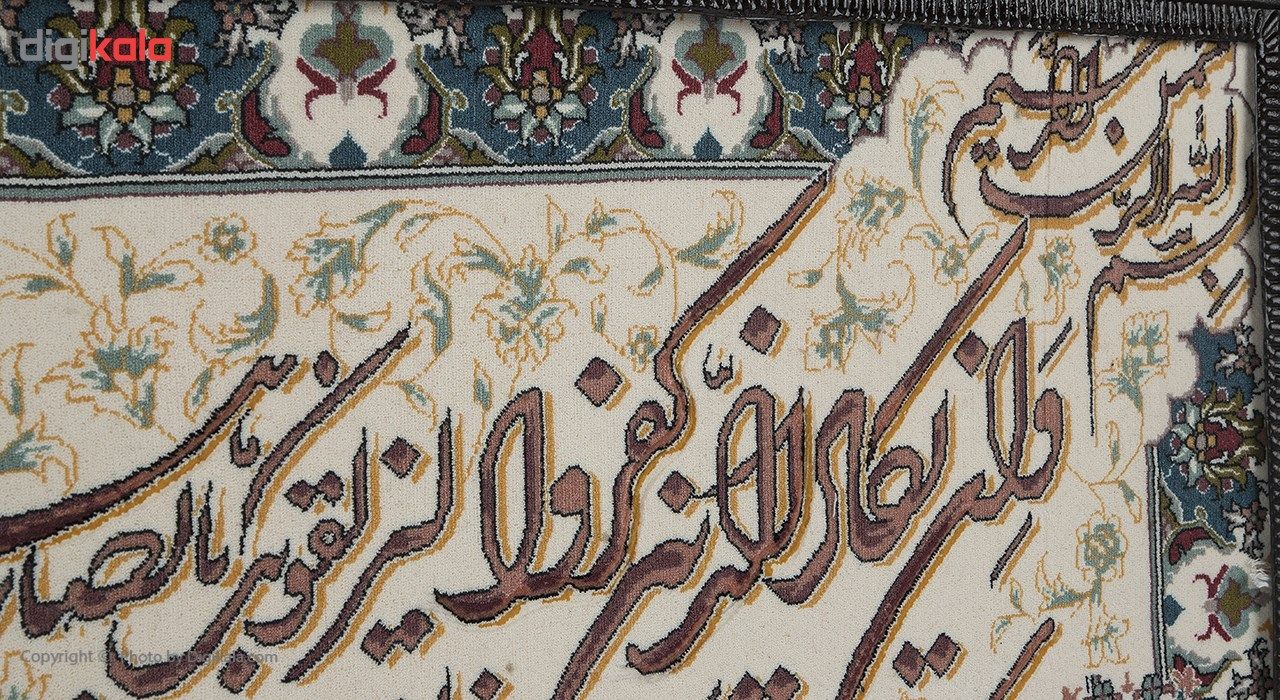 digikala
بسم الله الرحمن الرحیم
وان یکاد الذین کفروا لیزلقونک بابصار
Copyright © Photo by Digikala.com